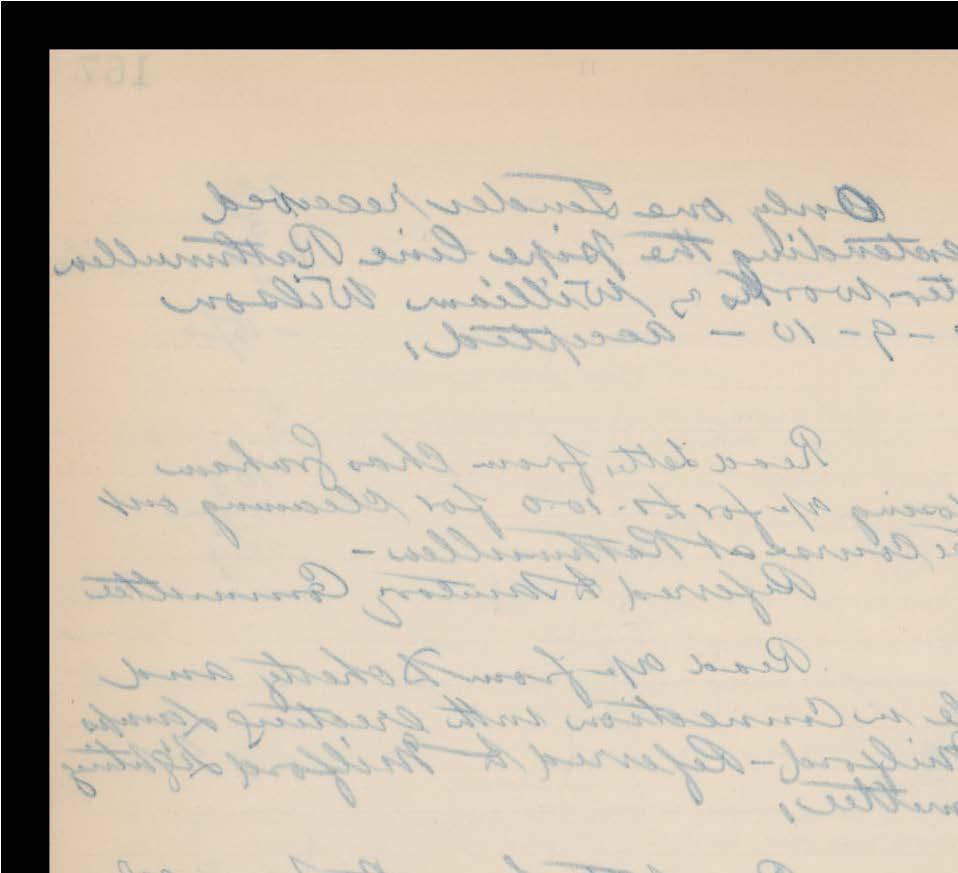 167
Only one Tender received
extending the pipe line Rathmullen
ter works, William Wilson
- 9 - 10 - accepted,
Read letter from Chas Graham
for cleaning out
Course at Rathmullen -
Referred to Sanitary Committee
Read from Doherty and
in Connection with erecting Lamps
Milford - Referred to Milford Lighting
mittee,